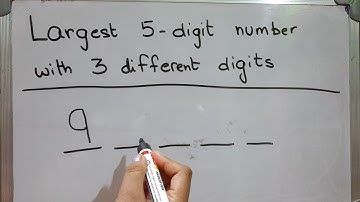 Largest 5-digit number
with 3 different digits
9